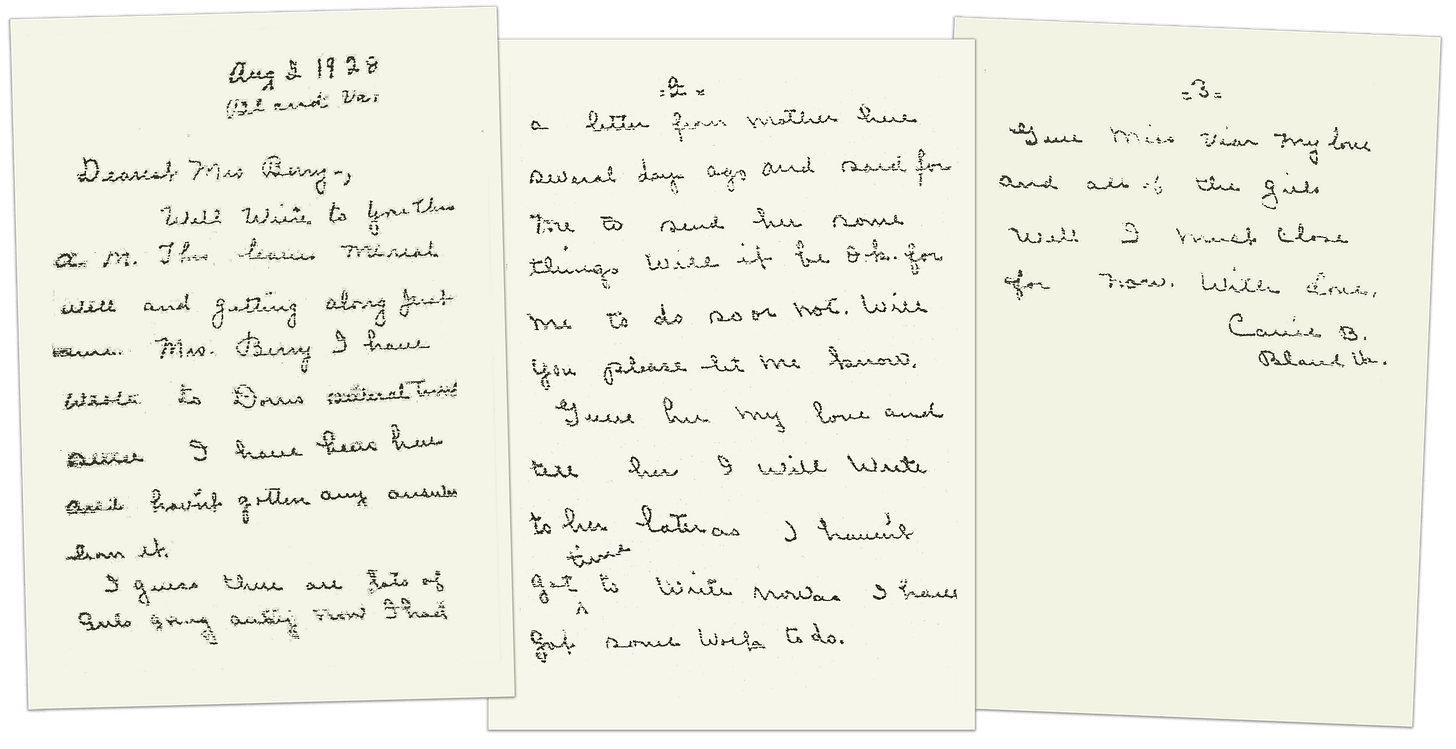 Aug 2 1928
Bland Va.
Dearest Mrs Berry-,
Well Write to you this
a. M. This leaves me real
well and getting along just
same. Mrs. Berry I have
wrote to Doris several times
since I have been here
and havnt gotten any answer
from it.
I guess there are lots of
Girls going away now I had
=2=
a letter from mother here
several day ago and said for
me to send her some
things Will it be O.k. for
me to do so or not. Will
you please let me know.
Give her my love and
tell her I will Write
to her later as I haven't
got time to Write now as I have
got some Work to do.
=3=
Give Miss Viar my love
and all of the girls
Well I must close
for now. With Love.
Carrie B.
Bland Va.